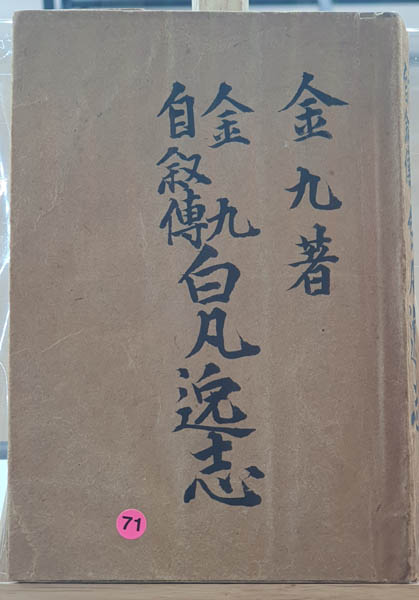 金九著
金九
自叙傳
白凡逸志
71